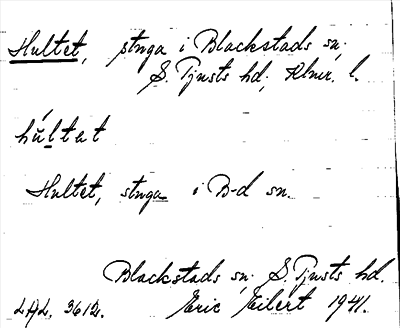 Hultet, stuga i Blackstads sn;
S. Tjusts hd; Klmr. l.
húltat
Hultet, stuga i B-d sn.
Blackstads sn. S. Tjusts hd.
Eric Eilert 1941.